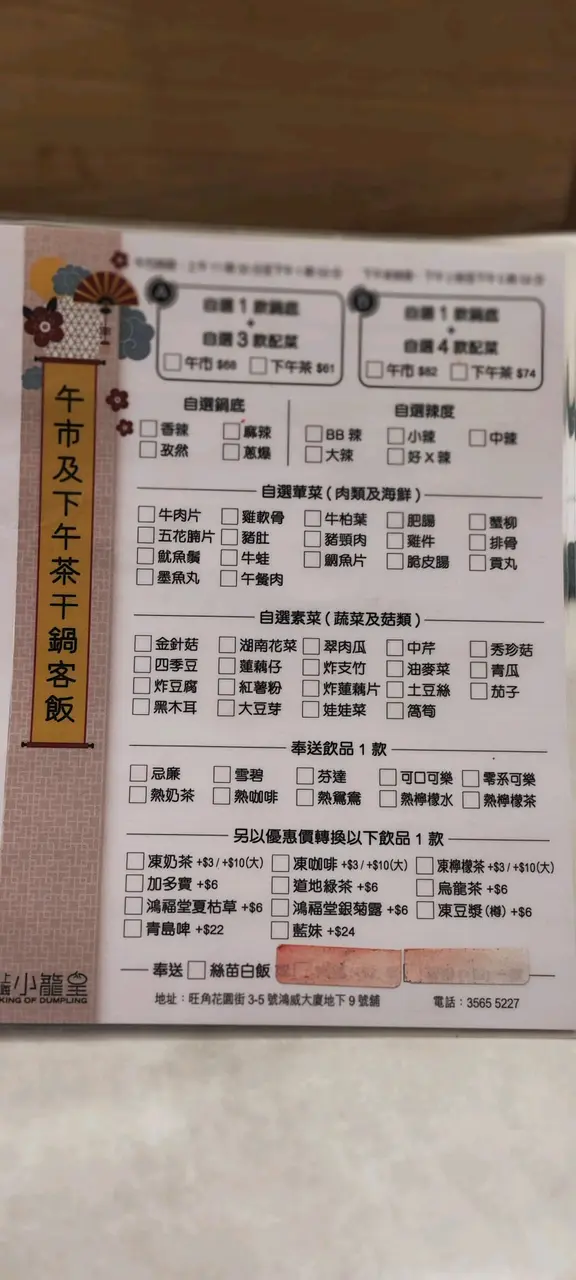 A
自選 1 款鍋底
+
自選 3 款配菜
午市 $68 下午茶 $61
B
自選 1 款鍋底
+
自選 4 款配菜
午市 $82 下午茶 $74
午市及下午茶干鍋客飯
自選鍋底
香辣 麻辣
孜然 蔥爆
自選辣度
BB 辣 小辣 中辣
大辣 好 X 辣
自選葷菜 ( 肉類及海鮮 )
牛肉片 雞軟骨 牛柏葉 肥腸 蟹柳
五花腩片 豬肚 豬頸肉 雞件 排骨
魷魚鬚 牛蛙 鯛魚片 脆皮腸 貢丸
墨魚丸 午餐肉
自選素菜 ( 蔬菜及菇類 )
金針菇 湖南花菜 翠肉瓜 中芹 秀珍菇
四季豆 蓮藕仔 炸支竹 油麥菜 青瓜
炸豆腐 紅薯粉 炸蓮藕片 土豆絲 茄子
黑木耳 大豆芽 娃娃菜 萵筍
奉送飲品 1 款
忌廉 雪碧 芬達 可口可樂 零系可樂
熱奶茶 熱咖啡 熱鴛鴦 熱檸檬水 熱檸檬茶
另以優惠價轉換以下飲品 1 款
凍奶茶 +$3 / +$10(大) 凍咖啡 +$3 / +$10(大) 凍檸檬茶 +$3 / +$10(大)
加多寶 +$6 道地綠茶 +$6 烏龍茶 +$6
鴻福堂夏枯草 +$6 鴻福堂銀菊露 +$6 凍豆漿 (樽) +$6
青島啤 +$22 藍妹 +$24
奉送 絲苗白飯
小龍皇
KING OF DUMPLING
地址：旺角花園街 3-5 號鴻威大廈地下 9 號舖 電話：3565 5227